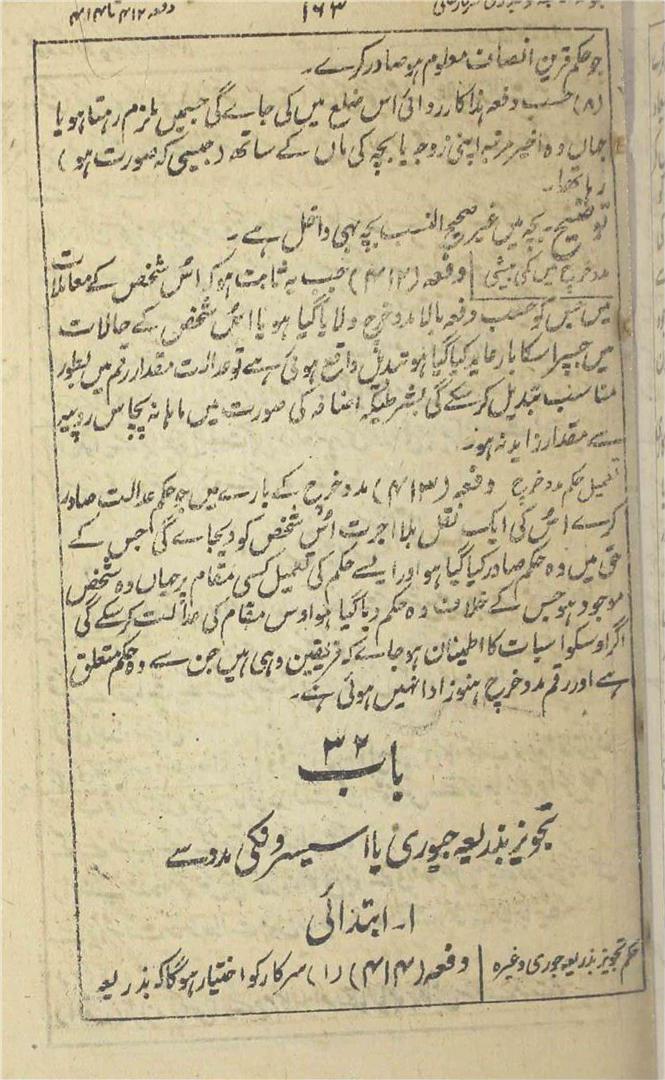 دفعہ ۴۱۲ تا ۴۱۴
۱۶۳
جو حکم قرین انصاف معلوم ہو صادر کرے۔
(۸) حسب دفعہ ہذا کارروائی اس ضلع میں کی جاے گی جسمیں ملزم رہتا ہو یا
جہاں وہ اخیر مرتبہ اپنی زوجہ یا بچہ کی ماں کے ساتھ (جیسی کہ صورت ہو)
رہا تھا۔
توضیح۔ بچہ میں غیر صحیح النسب بچہ بھی داخل ہے۔
مدد خرچ میں کمی بیشی دفعہ (۴۱۲) جب یہ ثابت ہو کہ اس شخص کے معاملات
میں جس کو حسب دفعہ بالا مدد خرچ دلایا گیا ہو یا اس شخص کے حالات
میں جسپر اسکا بار عاید کیا گیا ہو تبدیلی واقع ہوئی ہے تو عدالت مقدار رقم میں بطور
مناسب تبدیل کرسکے گی بشرطیکہ اضافہ کی صورت میں ماہانہ پچاس روپیہ
سے مقدار زاید نہ ہو۔
تعمیل حکم مدد خرچ دفعہ (۴۱۳) مدد خرچ کے بارے میں جو حکم عدالت صادر
کرے اس کی ایک نقل بلا اجرت اس شخص کو دیجاے گی جس کے
حق میں وہ حکم صادر کیا گیا ہو اور ایسے حکم کی تعمیل کسی مقام پر جہاں وہ شخص
موجود ہو جس کے خلاف وہ حکم دیا گیا ہو اوس مقام کی عدالت کرسکے گی
اگر اوسکو اسبات کا اطمینان ہو جاے کہ فریقین وہی ہیں جن سے وہ حکم متعلق
ہے اور رقم مدد خرچ ہنوز ادا نہیں ہوئی ہے۔
باب ۳۲
تجویز بذریعہ جیوری یا اسیسروں کی مدد سے
۱۔ ابتدائی
حکم تجویز بذریعہ جوری وغیرہ دفعہ (۴۱۴) (۱) سرکار کو اختیار ہوگا کہ بذریعہ